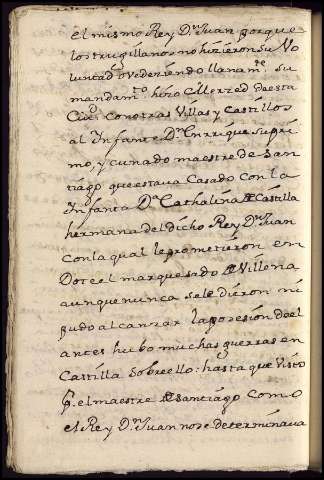 el mismo Rey Dn Juan porque
los trugillanos no hizieron su Vo
luntad obedeziendo llanamte su
mandamto hizo Merzed de esta
Ciud con otras Villas y Castillos
al Ynfante Dn Enrrique su pri
mo, y cuñado maestre de San
tiago que estava Casado con la
Ynfanta Da Cathalina de Castilla
hermana del dicho Rey Dn Juan
con la qual le prometieron en
Dote el marquesado de Villena
aunque nunca se le dieron ni
pudo alcanzar la posesion de el
antes hubo muchas guerras en
Castilla sobre ello: hasta que Visto
por el maestre de Santiago como
el Rey Dn Juan no se determinava